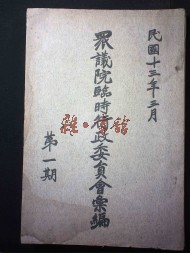 民國十三年三月
眾議院臨時行政委員會彙編
第一期